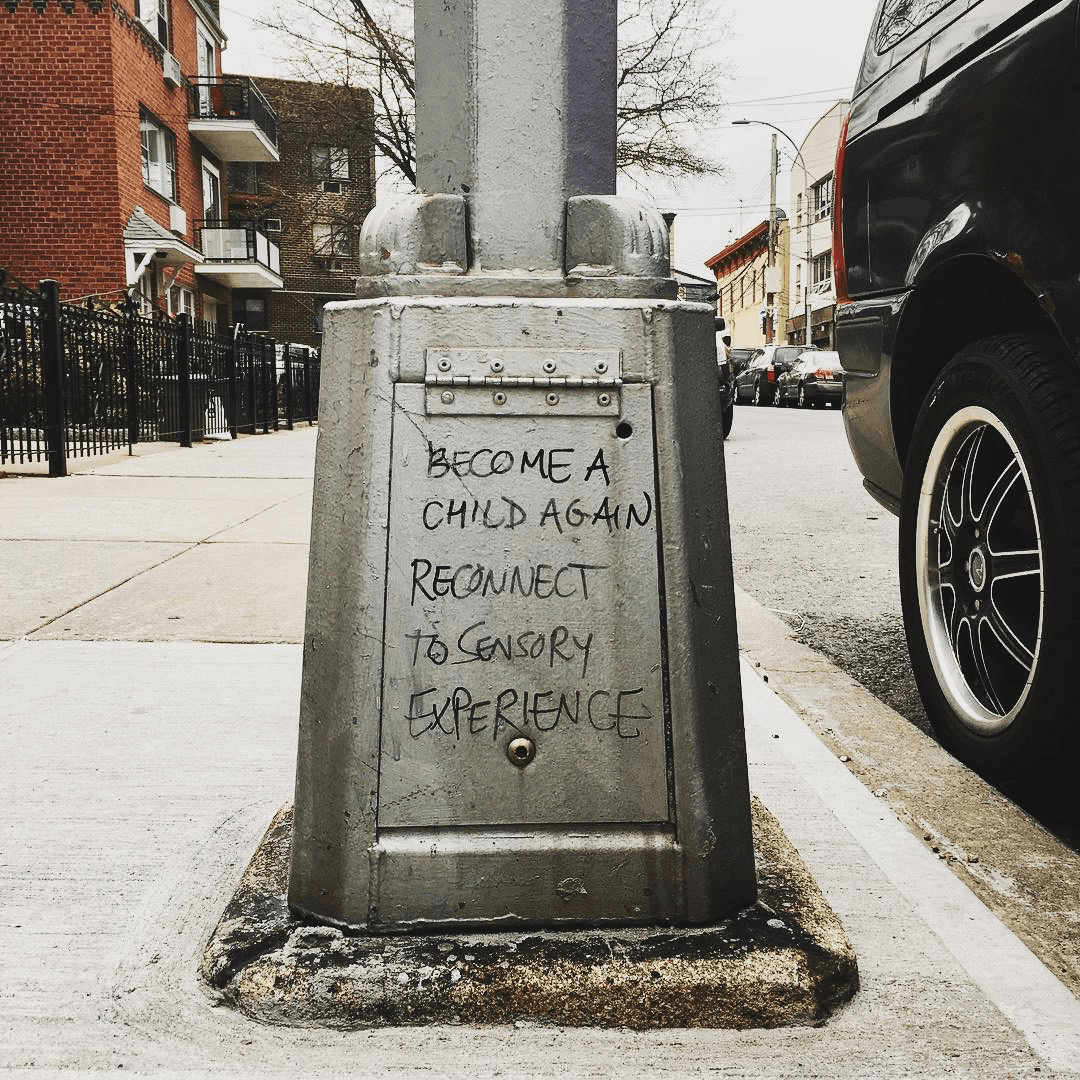 BECOME A
CHILD AGAIN
RECONNECT
TO SENSORY
EXPERIENCE